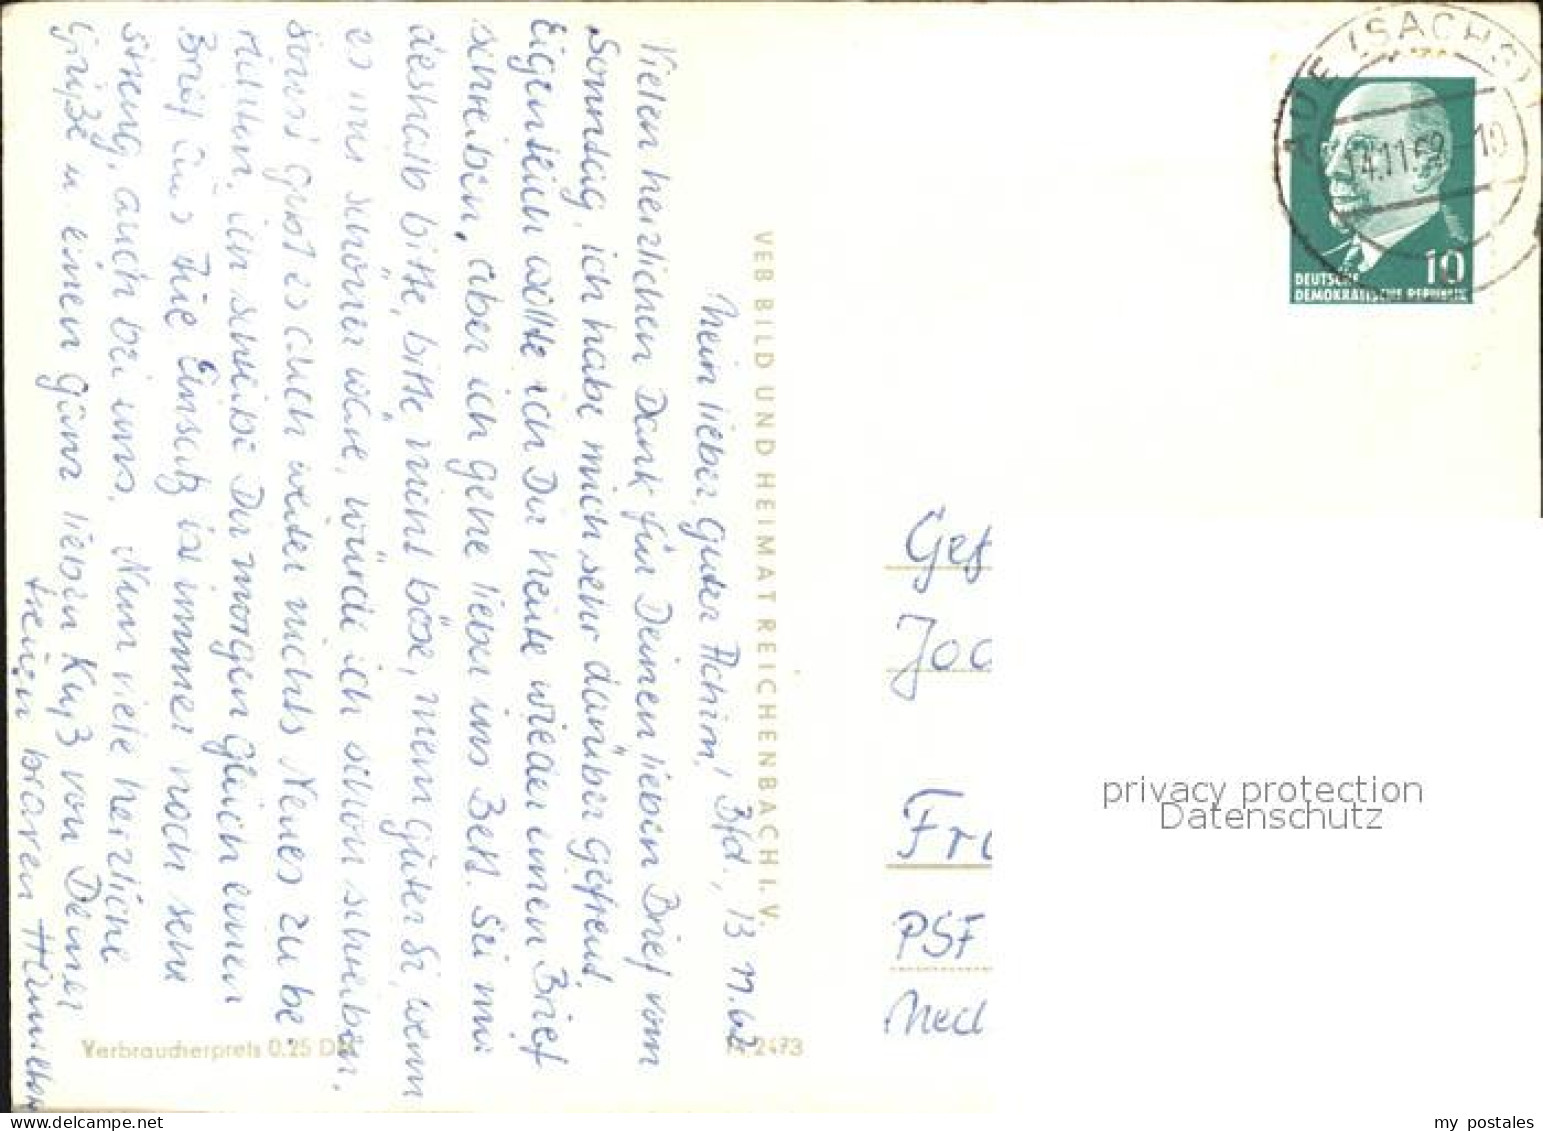 Mein lieber, guter Achim! Bfd., 13.11.62
Vielen herzlichen Dank für Deinen lieben Brief vom
Sonntag, ich habe mich sehr darüber gefreut.
Eigentlich wollte ich Dir heute wieder einen Brief
schreiben, aber ich gehe lieber ins Bett. Sei mir
deshalb bitte, bitte nicht böse, mein guter, wenn
es mir schöner wäre, würde ich schon schreiben.
Sonst gibt es auch weiter nichts Neues zu be
richten, ich schreibe Dir morgen gleich einen
Brief. Einsatz ist immer noch sehr
streng, auch bei uns. Nun viele herzliche
Grüße u. einen ganz lieben Kuß von Deiner
treuen braven
VEB BILD UND HEIMAT REICHENBACH I. V.
Verbraucherpreis 0.25 DM
AUE (SACHS)
14.11.62 - 10
10
DEUTSCHE
DEMOKRATISCHE REPUBLIK
Gef
Joc
Fra
PSF
Meck
privacy protection
Datenschutz
my postales
www.delcampe.net